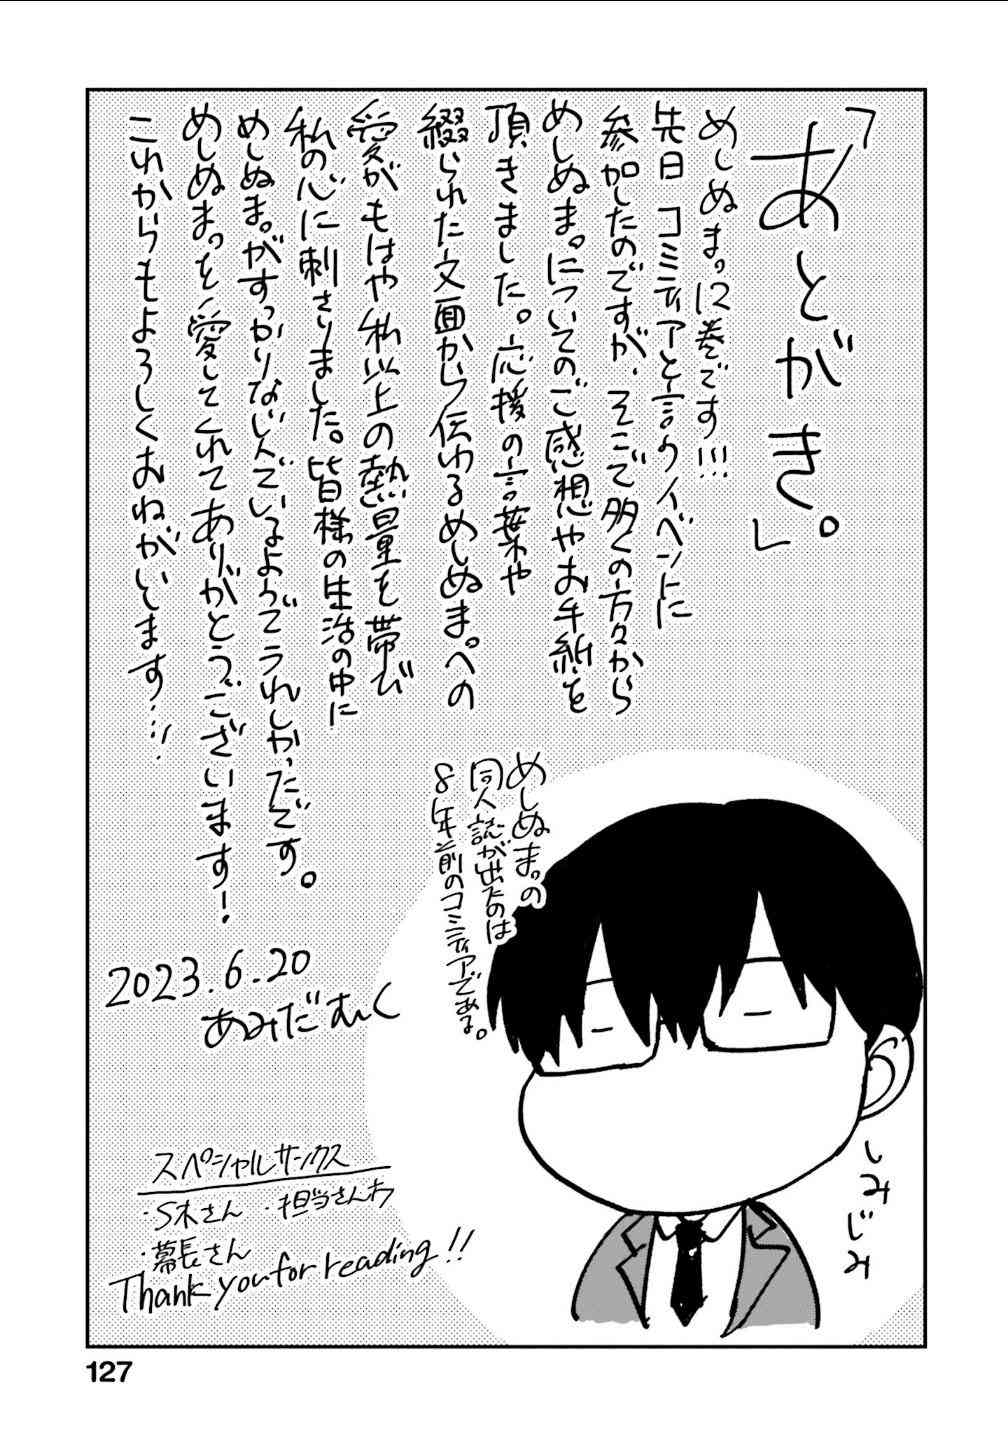 「あとがき。」
めしぬま。12巻です!!!
先日 コミティアと言うイベントに
参加したのですが、そこで多くの方々から
めしぬま。についてのご感想やお手紙を
頂きました。応援の言葉や
綴られた文面から伝わるめしぬま。への
愛がもはや私以上の熱量を帯び
私の心に刺さりました。皆様の生活の中に
めしぬま。がすっかりなじんでいるようでうれしかったです。
めしぬま。を愛してくれてありがとうございます!
これからもよろしくおねがいします…!!
めしぬま。の
同人誌が出たのは
8年前のコミティアである。
しみじみ
2023.6.20
あみだむく
スペシャルサンクス
・S木さん ・担当さんわ
・幕長さん
Thank you for reading!!
127